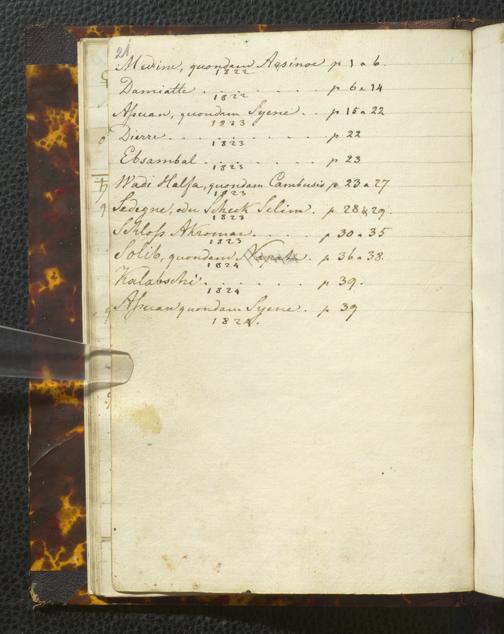 21
Medine, quondam Arsinoe p 1 a 6.
1822
Damiatte . . . . . . . . p 6 a 14
1822
Assuan, quondam Syene . . p 15 a 22
1823
Dierre . . . . . . . . p 22
1823
Ebsambal . . . . . . . . p 23
1823
Wadi Halfa, quondam Cambusis p. 23 a 27
1823
Sedegne, odu Scheck Selim . p. 28 & 29.
1823
Schloss Akroman . . . . p 30 a 35
1823
Solib, quondam Napata . p 36 a 38.
1824
Kalabsché . . . . . . p 39.
1824
Assuan quondam Syene . p 39
1824.